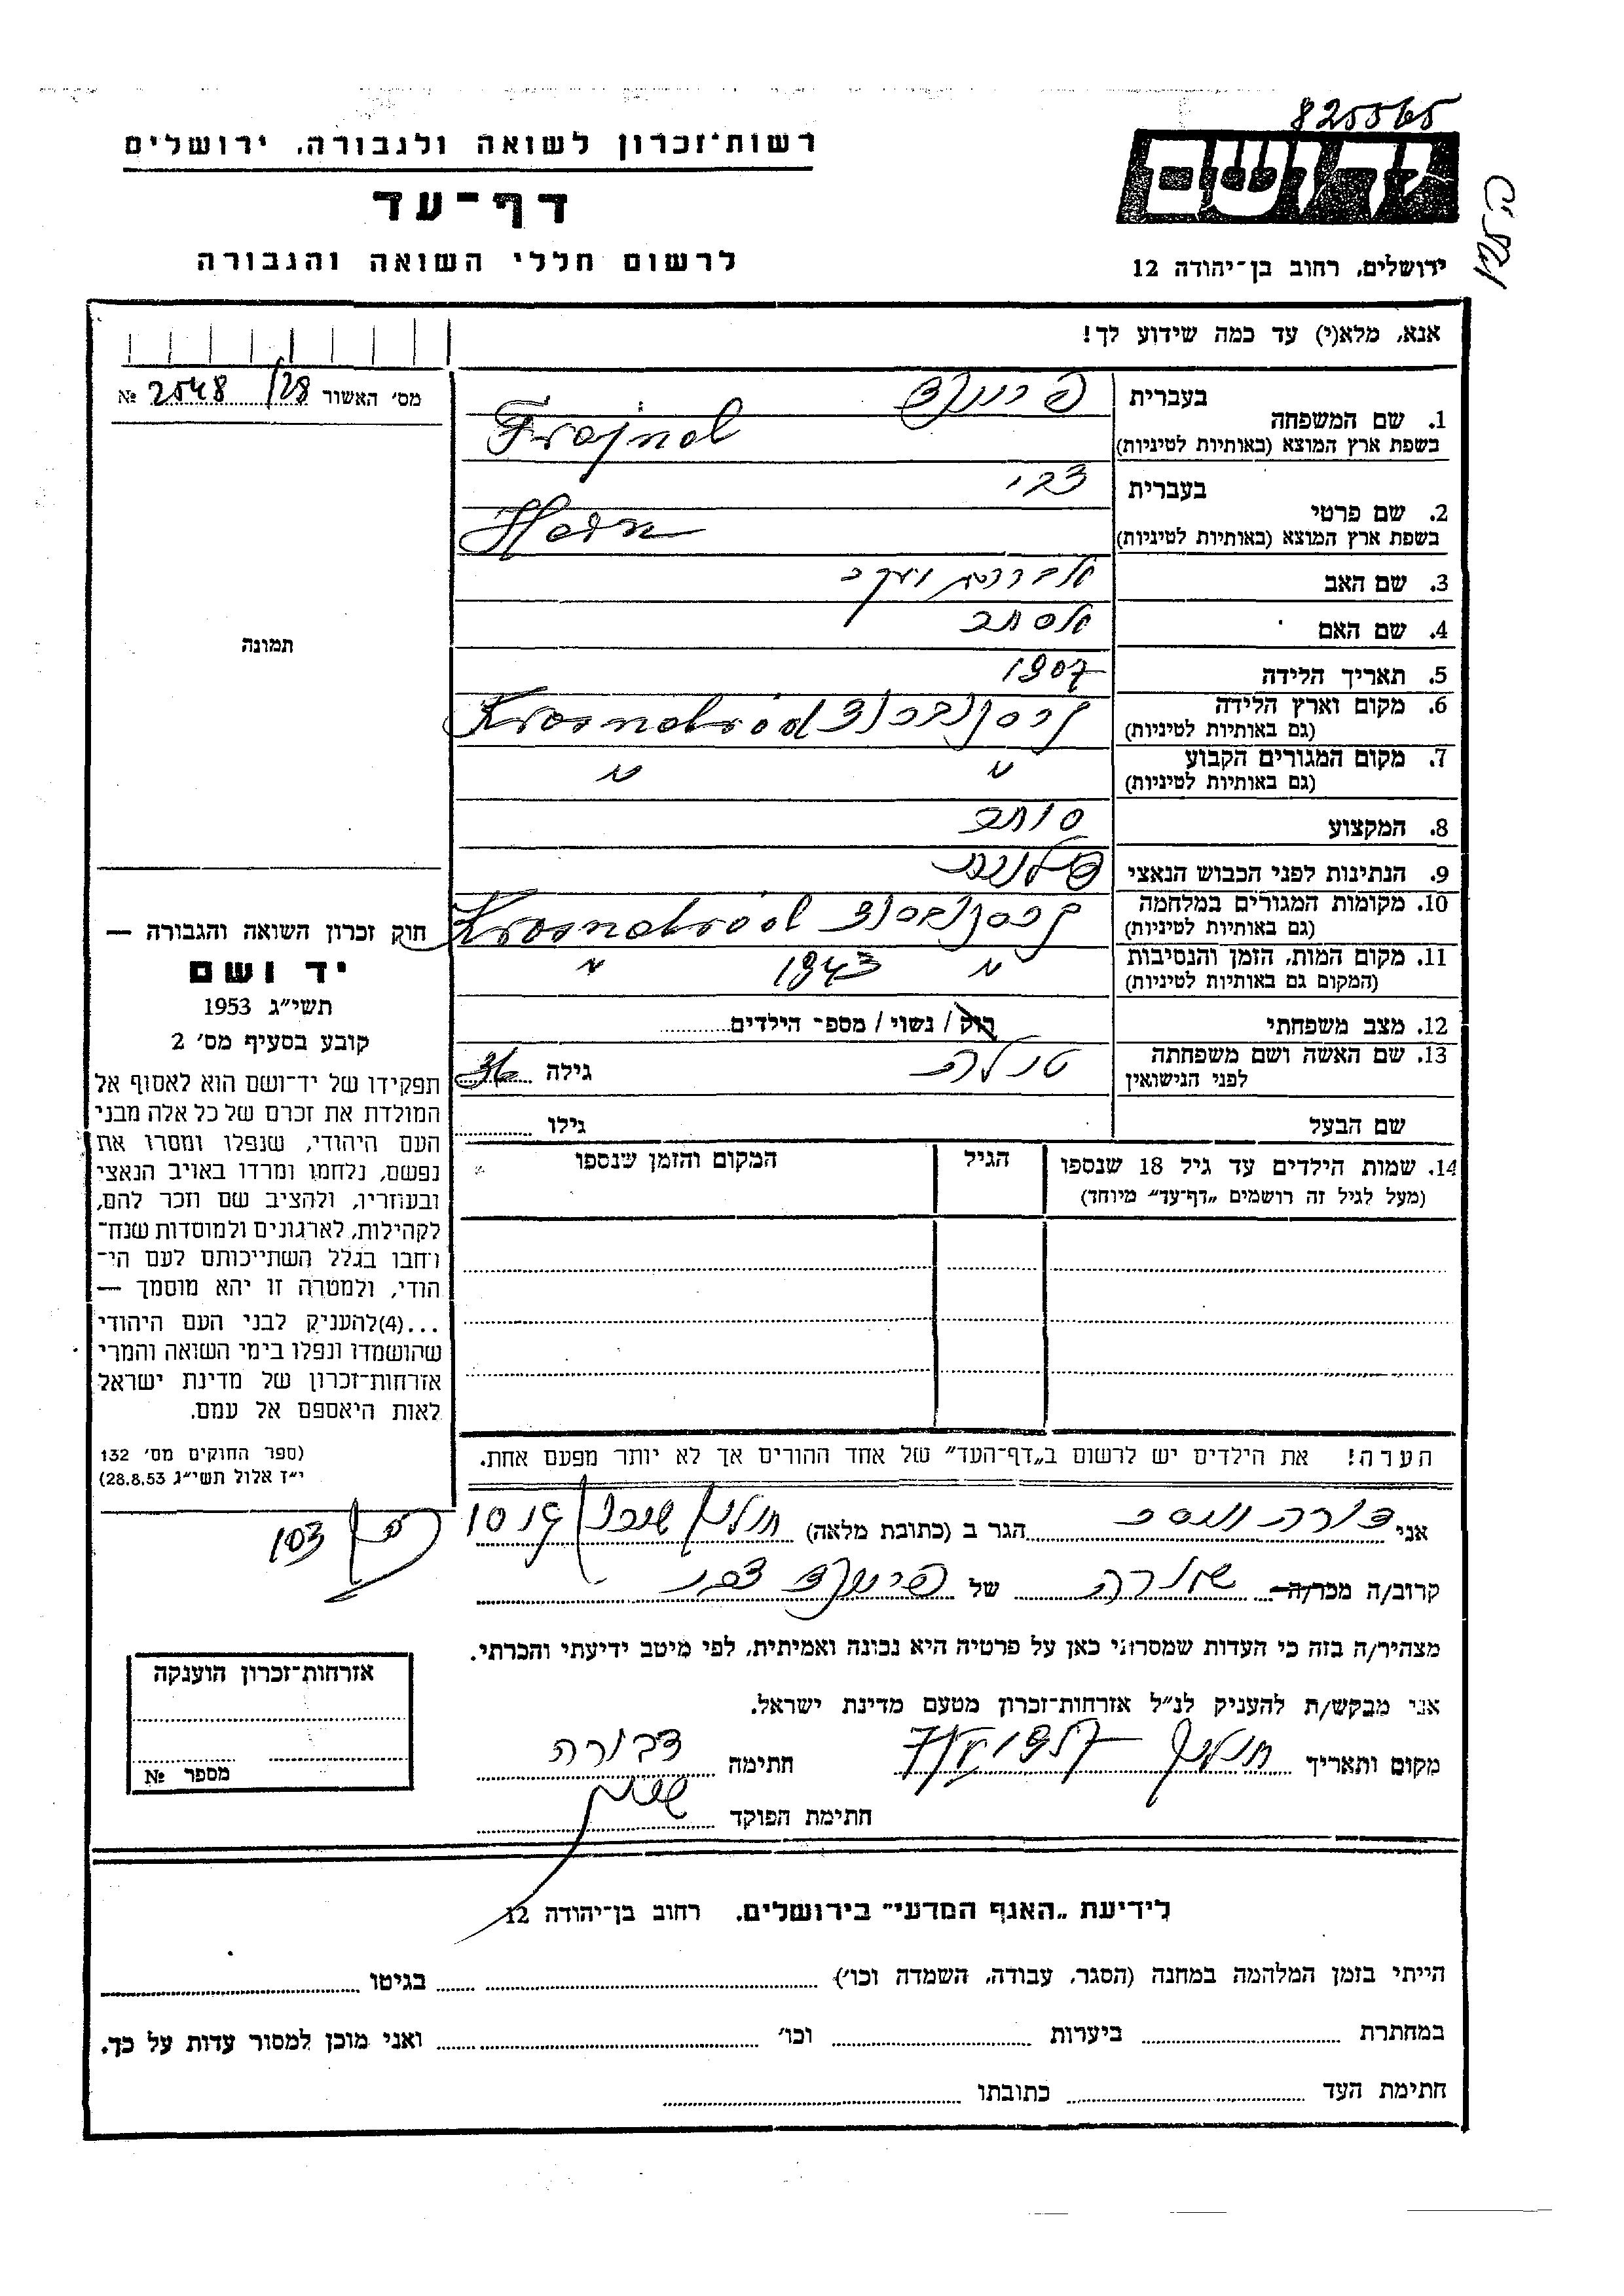 825565
רשות־זכרון לשואה ולגבורה, ירושלים
יד ושם
דף־עד
לרשום חללי השואה והגבורה
ירושלים, רחוב בן־יהודה 12
אנא, מלא(י) עד כמה שידוע לך!
מס׳ האשור 28/ 2548 №
1. שם המשפחה
בעברית
בשפת ארץ המוצא (באותיות לטיניות) Frajnd
2. שם פרטי
בעברית צבי
בשפת ארץ המוצא (באותיות לטיניות)
3. שם האב
4. שם האם אסתר
5. תאריך הלידה 1907
6. מקום וארץ הלידה
(גם באותיות לטיניות) Krasnobród
7. מקום המגורים הקבוע " "
(גם באותיות לטיניות)
8. המקצוע סוחר
9. הנתינות לפני הכבוש הנאצי פולנית
10. מקומות המגורים במלחמה
(גם באותיות לטיניות) Krasnobród
11. מקום המות, הזמן והנסיבות " 1943 "
(המקום גם באותיות לטיניות)
12. מצב משפחתי רוק / נשוי / מספר הילדים
13. שם האשה ושם משפחתה
לפני הנישואין
גילה 36
שם הבעל גילו
14. שמות הילדים עד גיל 18 שנספו הגיל המקום והזמן שנספו
(מעל לגיל זה רושמים „דף־עד״ מיוחד)
הערה! את הילדים יש לרשום ב„דף־העד״ של אחד ההורים אך לא יותר מפעם אחת.
תמונה
חוק זכרון השואה והגבורה —
יד ושם
תשי״ג 1953
קובע בסעיף מס׳ 2
תפקידו של יד־ושם הוא לאסוף אל
המולדת את זכרם של כל אלה מבני
העם היהודי, שנפלו ומסרו את
נפשם, נלחמו ומרדו באויב הנאצי
ובעוזריו, ולהציב שם וזכר להם,
לקהילות, לארגונים ולמוסדות שנח־
רחבו בגלל השתייכותם לעם הי־
הודי, ולמטרה זו יהא מוסמך —
...(4)להעניק לבני העם היהודי
שהושמדו ונפלו בימי השואה והמרי
אזרחות־זכרון של מדינת ישראל
לאות היאספם אל עמם.
(ספר החוקים מס׳ 132
י״ז אלול תשי״ג 28.8.53)
אני הגר ב (כתובת מלאה) חולון
103
קרוב/ה מכר/ה של צבי
מצהיר/ה בזה כי העדות שמסרתי כאן על פרטיה היא נכונה ואמיתית, לפי מיטב ידיעתי והכרתי.
אני מבקש/ת להעניק לנ״ל אזרחות־זכרון מטעם מדינת ישראל.
מקום ותאריך חולון חתימה דבורה
חתימת הפוקד
אזרחות־זכרון הוענקה
מספר №
לידיעת „האגף המדעי״ בירושלים, רחוב בן־יהודה 12
הייתי בזמן המלהמה במחנה (הסגר, עבודה, השמדה וכו׳) בגיטו
במחתרת ביערות וכו׳ ואני מוכן למסור עדות על כך.
חתימת העד כתובתו